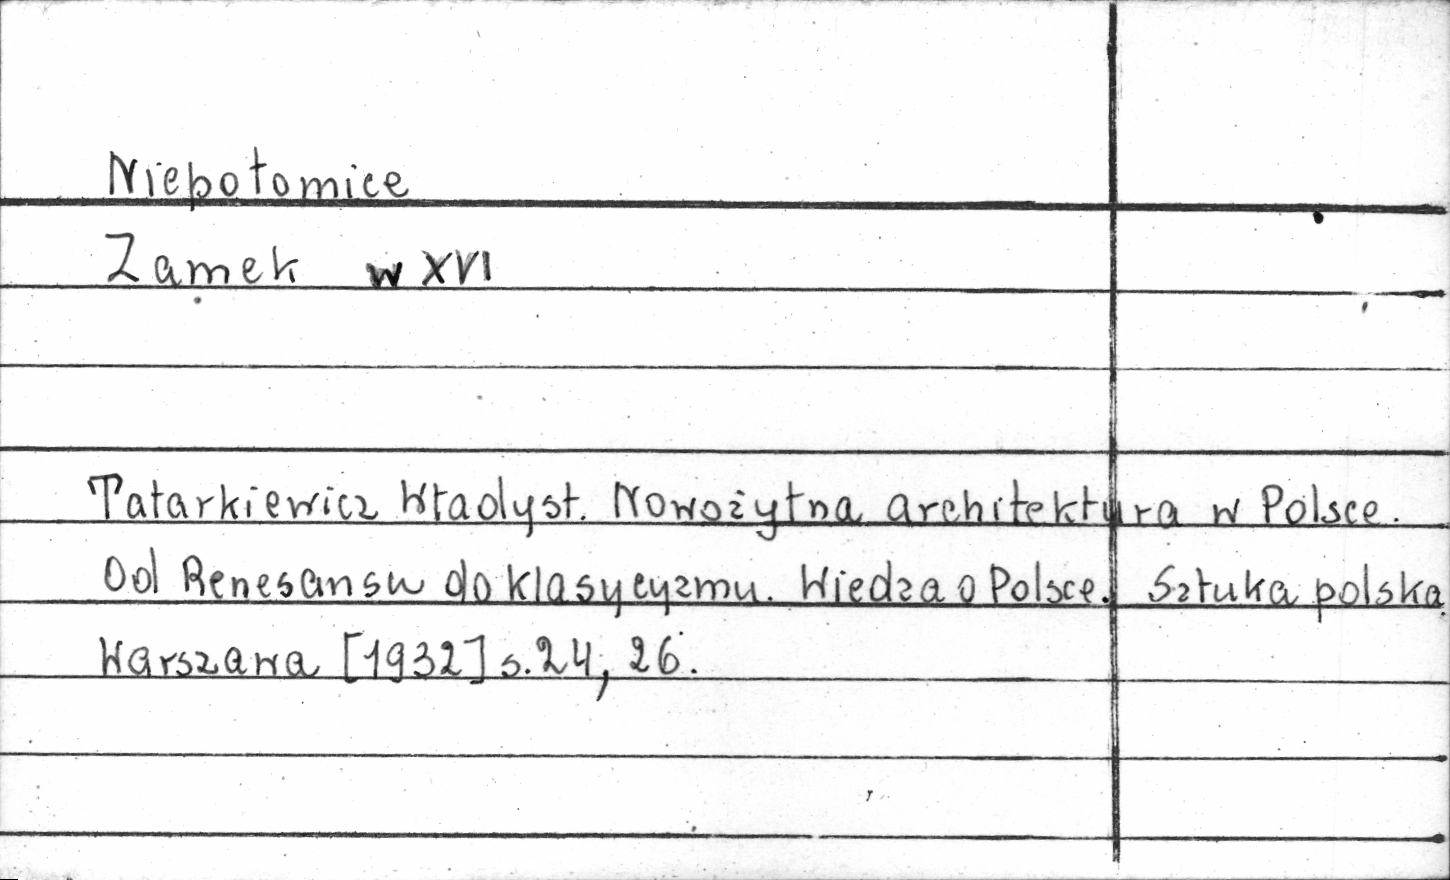 Niepołomice
Zamek w XVI
Tatarkiewicz Władysł. Nowożytna architektura w Polsce.
Od Renesansu do klasycyzmu. Wiedza o Polsce. Sztuka polska
Warszawa [1932] s. 24, 26.